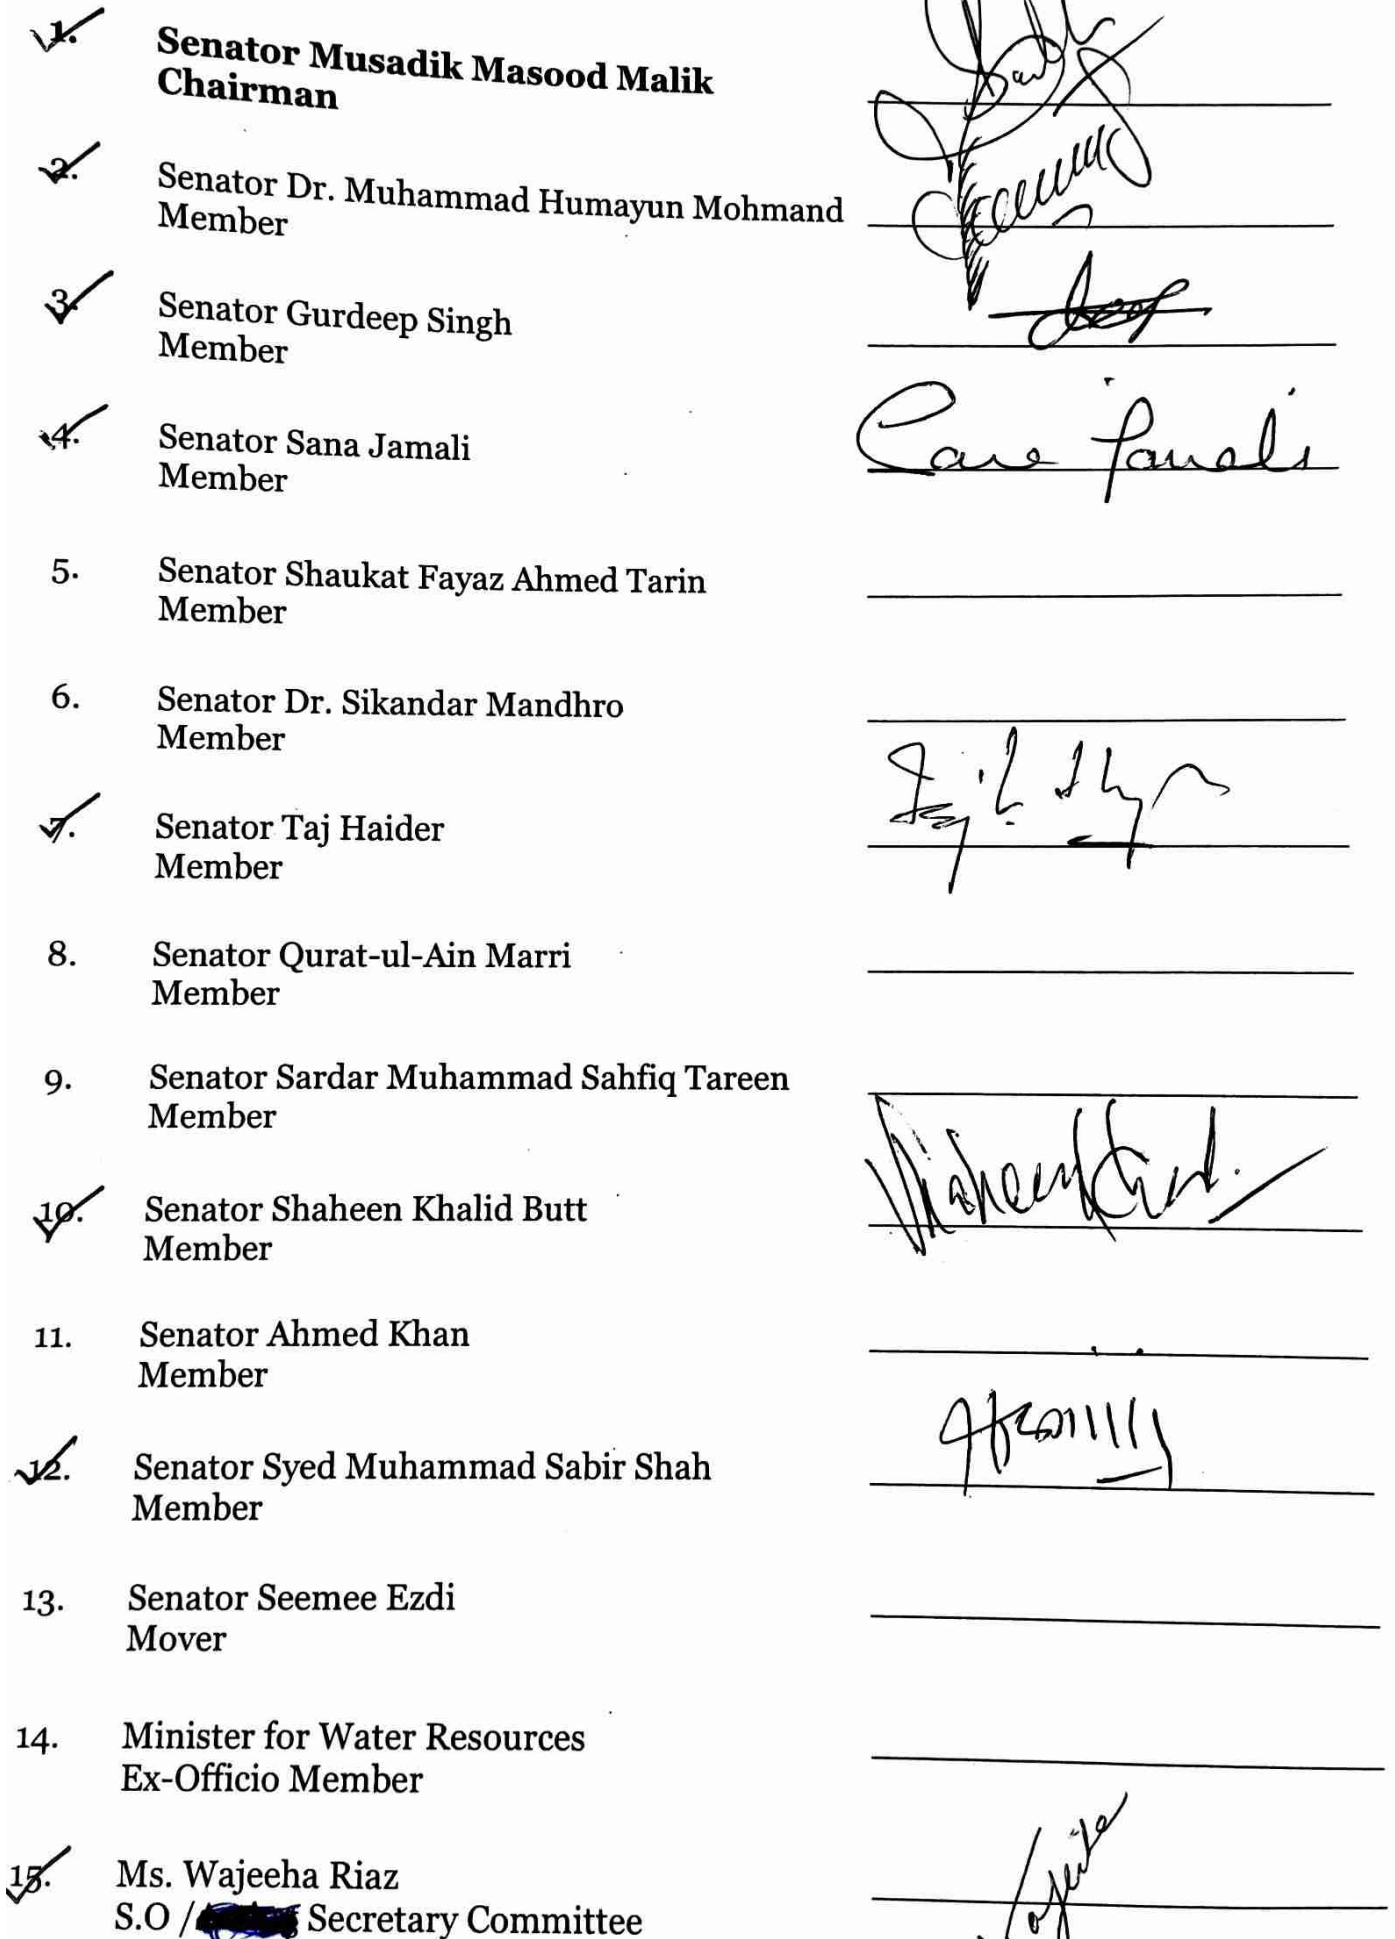 1. Senator Musadik Masood Malik
Chairman
2. Senator Dr. Muhammad Humayun Mohmand
Member
3. Senator Gurdeep Singh
Member
4. Senator Sana Jamali
Member
5. Senator Shaukat Fayaz Ahmed Tarin
Member
6. Senator Dr. Sikandar Mandhro
Member
7. Senator Taj Haider
Member
8. Senator Qurat-ul-Ain Marri
Member
9. Senator Sardar Muhammad Sahfiq Tareen
Member
10. Senator Shaheen Khalid Butt
Member
11. Senator Ahmed Khan
Member
12. Senator Syed Muhammad Sabir Shah
Member
13. Senator Seemee Ezdi
Mover
14. Minister for Water Resources
Ex-Officio Member
15. Ms. Wajeeha Riaz
S.O / Secretary Committee